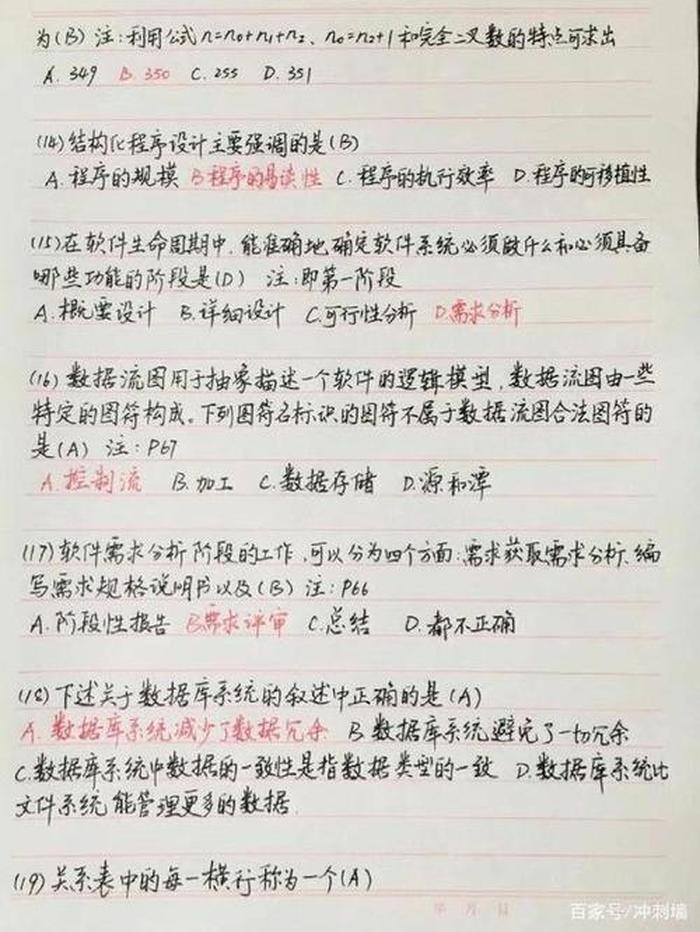 为(B) 注:利用公式n=n0+n1+n2、n0=n2+1和完全二叉数的特点可求出
A. 349 B. 350 C. 255 D. 351
(14)结构化程序设计主要强调的是(B)
A.程序的规模 B程序的易读性 C.程序的执行效率 D.程序的可移植性
(15)在软件生命周期中,能准确地确定软件系统必须做什么和必须具备
哪些功能的阶段是(D) 注:即第一阶段
A.概要设计 B.详细设计 C.可行性分析 D.需求分析
(16)数据流图用于抽象描述一个软件的逻辑模型,数据流图由一些
特定的图符构成。下列图符名标识的图符不属于数据流图合法图符的
是(A) 注:P67
A.控制流 B.加工 C.数据存储 D.源和潭
(17)软件需求分析阶段的工作,可以分为四个方面:需求获取需求分析、编
写需求规格说明书以及(B) 注:P66
A.阶段性报告 B需求评审 C.总结 D.都不正确
(18)下述关于数据库系统的叙述中正确的是(A)
A.数据库系统减少了数据冗余 B.数据库系统避免了一切冗余
C.数据库系统中数据的一致性是指数据类型的一致 D.数据库系统比
文件系统能管理更多的数据.
(19)关系表中的每一横行称为一个(A)
年 月 日
百家号/冲刺墙